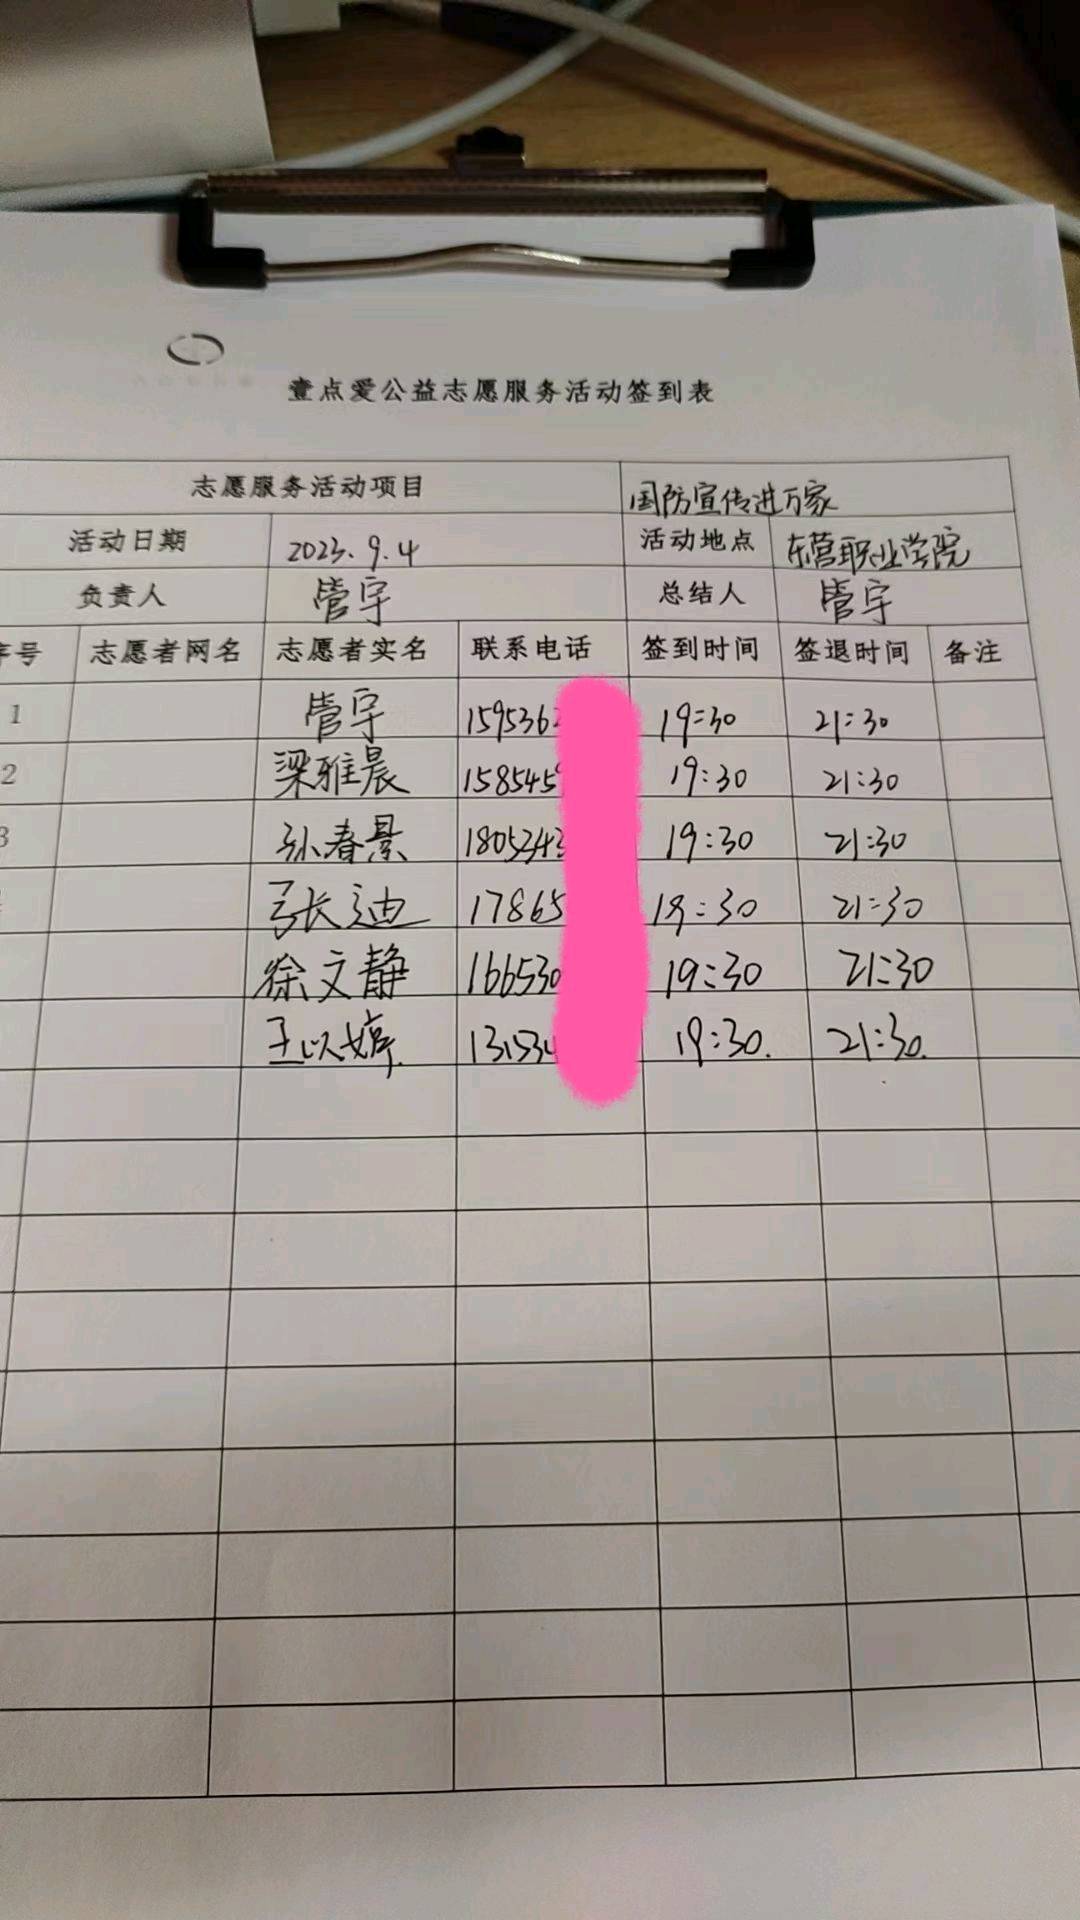 壹点爱公益志愿服务活动签到表
志愿服务活动项目 国防宣传进万家
活动日期 2023.9.4 活动地点 东营职业学院
负责人 管宇 总结人 管宇
序号 志愿者网名 志愿者实名 联系电话 签到时间 签退时间 备注
1 管宇 159536 19:30 21:30
2 梁雅晨 158545 19:30 21:30
3 孙春景 1805343 19:30 21:30
张迪 17865 19:30 21:30
徐文静 166530 19:30 21:30
王以婷. 131534 19:30. 21:30.